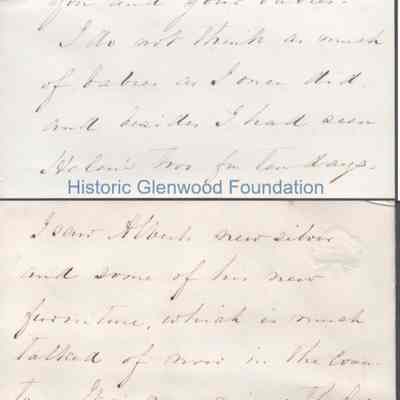 you and your babies.
I do not think as much
of babies as I once did
and besides I had seen
Helen's two for ten days.
Historic Glenwood Foundation
I saw new silver
and some of his new
furniture, which is much
talked of now in the Coun-